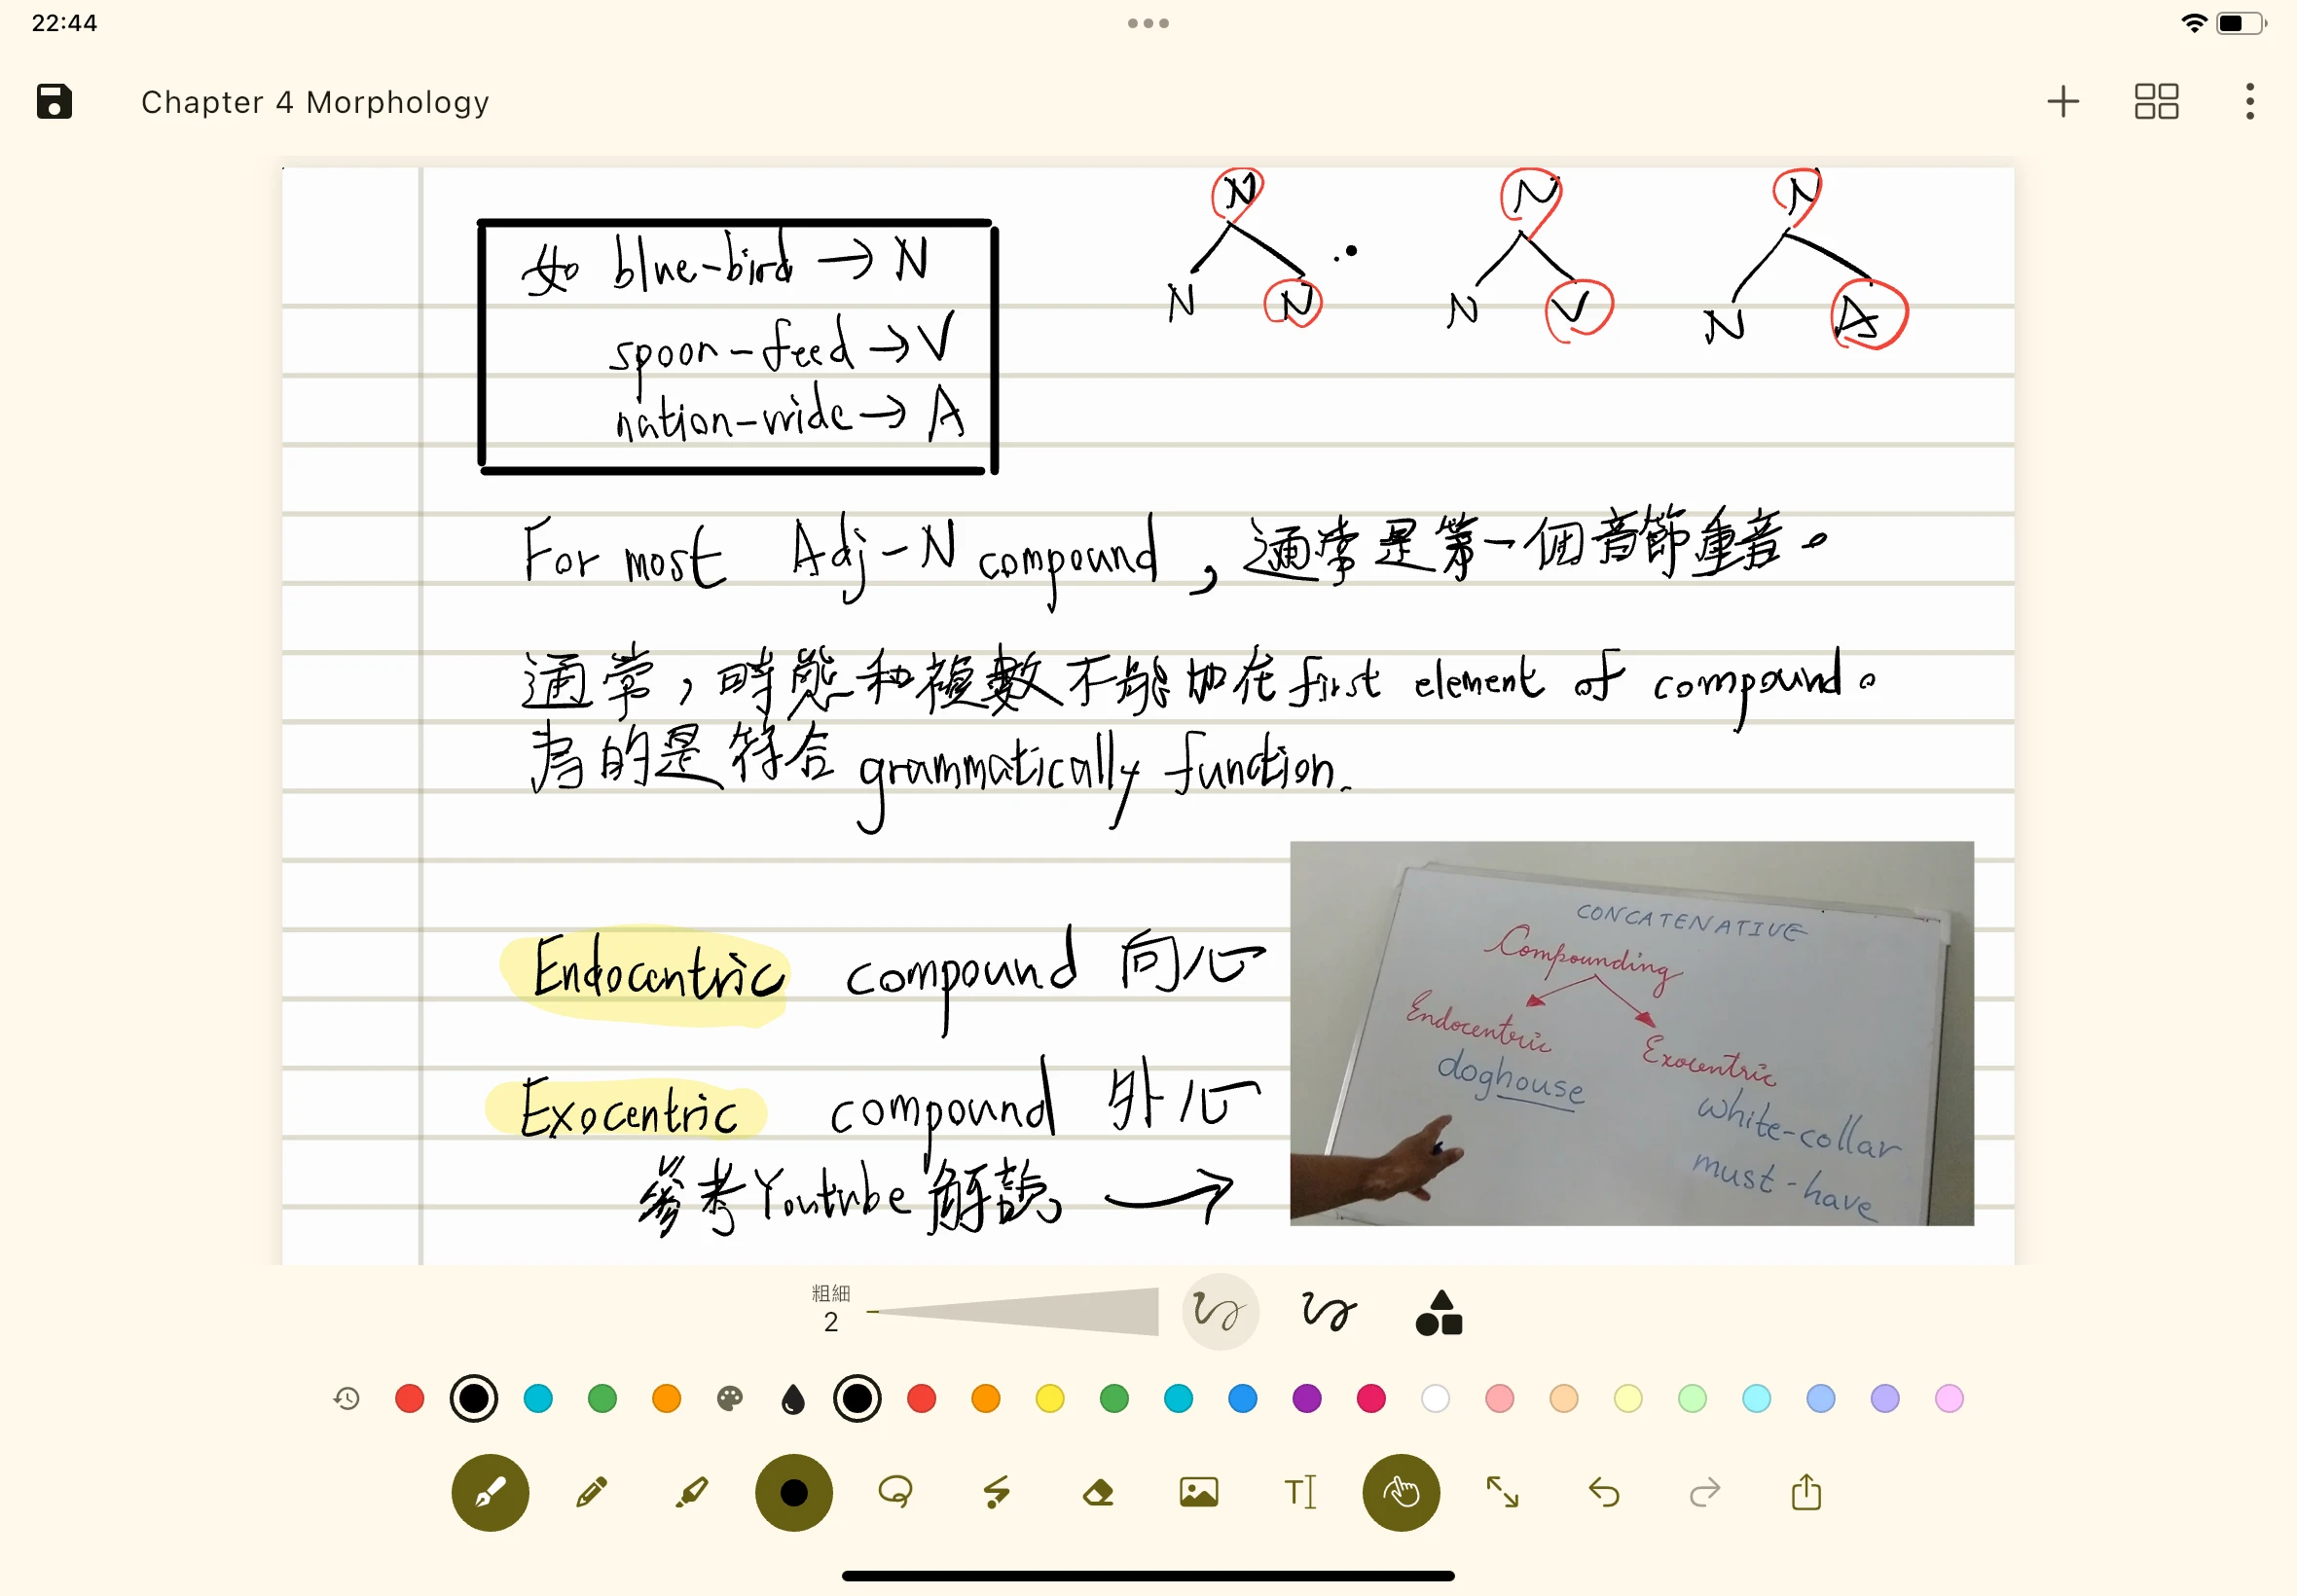 22:44
Chapter 4 Morphology
如 blue-bird → N
spoon-feed → V
nation-wide → A
N N N
N N N V N A
For most Adj-N compound, 通常是第一個音節重音。
通常, 時態和複數不能加在first element of compound。
為的是符合 grammatically function.
Endocentric compound 向心
Exocentric compound 外心
參考Youtube解說 →
CONCATENATIVE
Compounding
Endocentric Exocentric
doghouse
white-collar
must-have
粗細
2
T